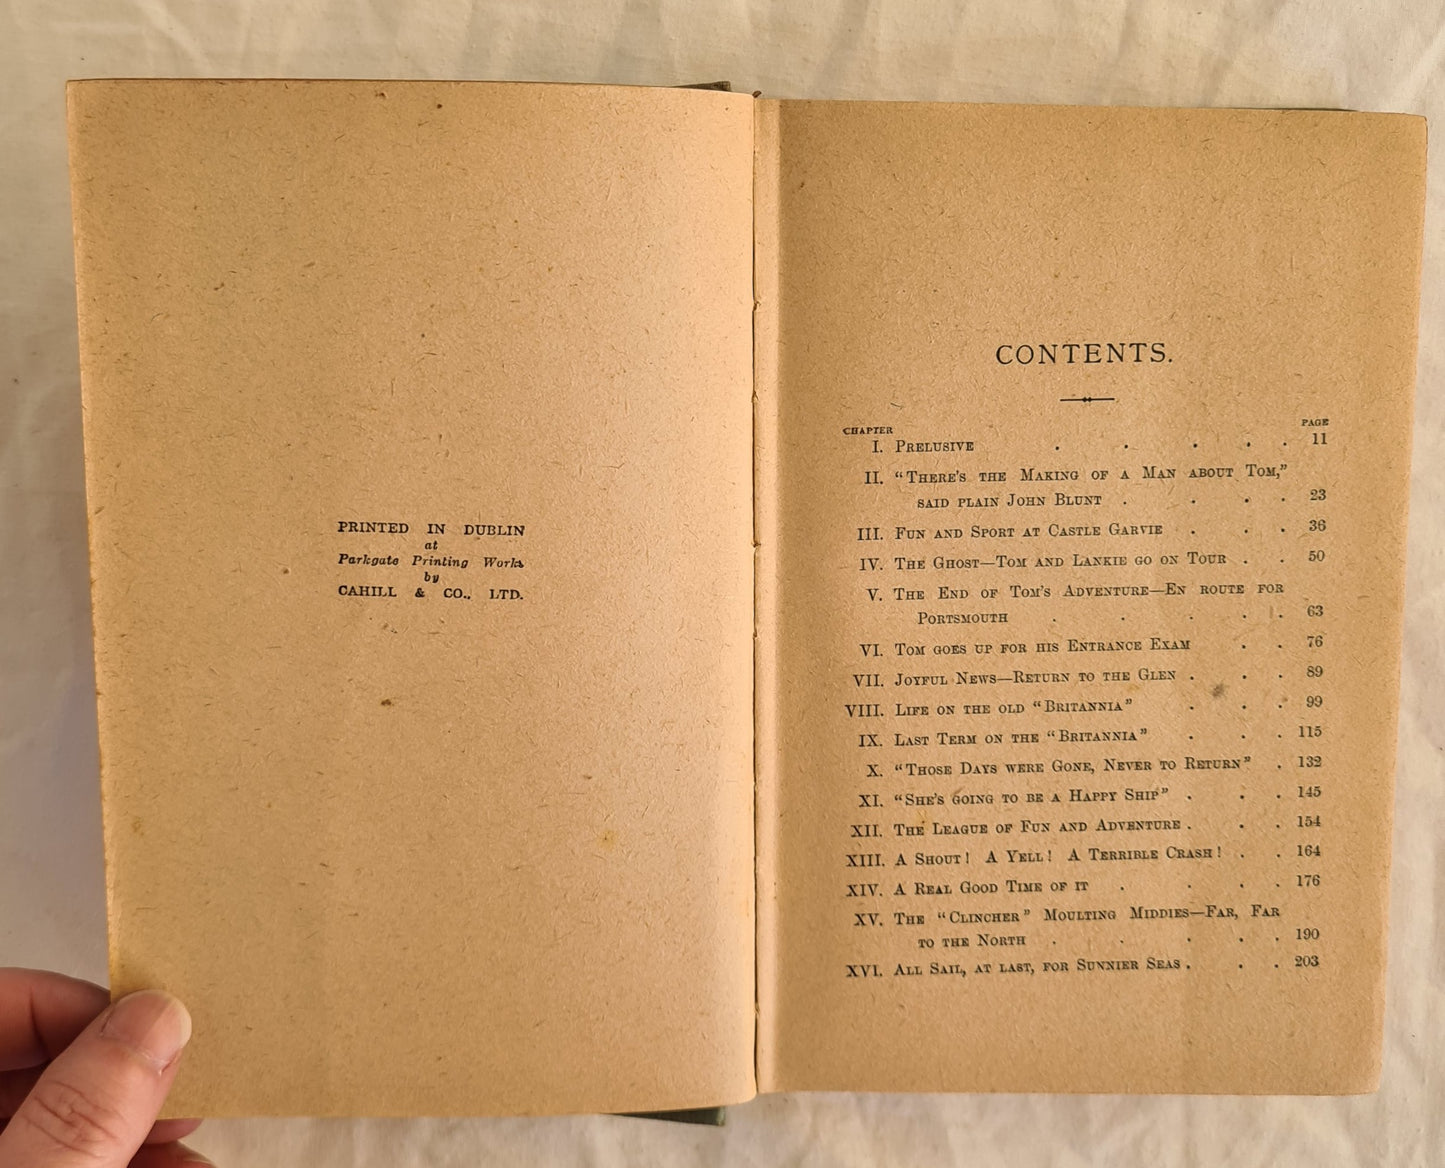 PRINTED IN DUBLIN
at
Parkgate Printing Works
by
CAHILL & CO., LTD.
CONTENTS.
CHAPTER PAGE
I. PRELUSIVE . . . . . 11
II. "THERE'S THE MAKING OF A MAN ABOUT TOM,"
SAID PLAIN JOHN BLUNT . . . . 23
III. FUN AND SPORT AT CASTLE GARVIE . . . 36
IV. THE GHOST—TOM AND LANKIE GO ON TOUR . . 50
V. THE END OF TOM'S ADVENTURE—EN ROUTE FOR
PORTSMOUTH . . . . . 63
VI. TOM GOES UP FOR HIS ENTRANCE EXAM . . 76
VII. JOYFUL NEWS—RETURN TO THE GLEN . . . 89
VIII. LIFE ON THE OLD "BRITANNIA" . . . 99
IX. LAST TERM ON THE "BRITANNIA" . . . 115
X. "THOSE DAYS WERE GONE, NEVER TO RETURN" . 132
XI. "SHE'S GOING TO BE A HAPPY SHIP" . . . 145
XII. THE LEAGUE OF FUN AND ADVENTURE . . . 154
XIII. A SHOUT! A YELL! A TERRIBLE CRASH! . . 164
XIV. A REAL GOOD TIME OF IT . . . . 176
XV. THE "CLINCHER" MOULTING MIDDIES—FAR, FAR
TO THE NORTH . . . . . 190
XVI. ALL SAIL, AT LAST, FOR SUNNIER SEAS . . . 203